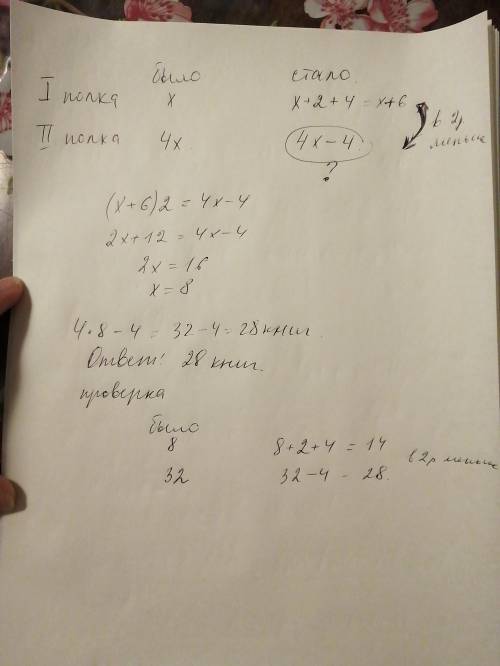 было стало.
I полка x x+2+4 = x+6
II полка 4x 4x-4 в 2р меньше
?
(x+6)2 = 4x-4
2x+12 = 4x-4
2x = 16
x = 8
4•8-4 = 32-4 = 28 книг.
Ответ: 28 книг.
проверка
было
8 8+2+4 = 14
32 32-4 - 28. в 2р меньше